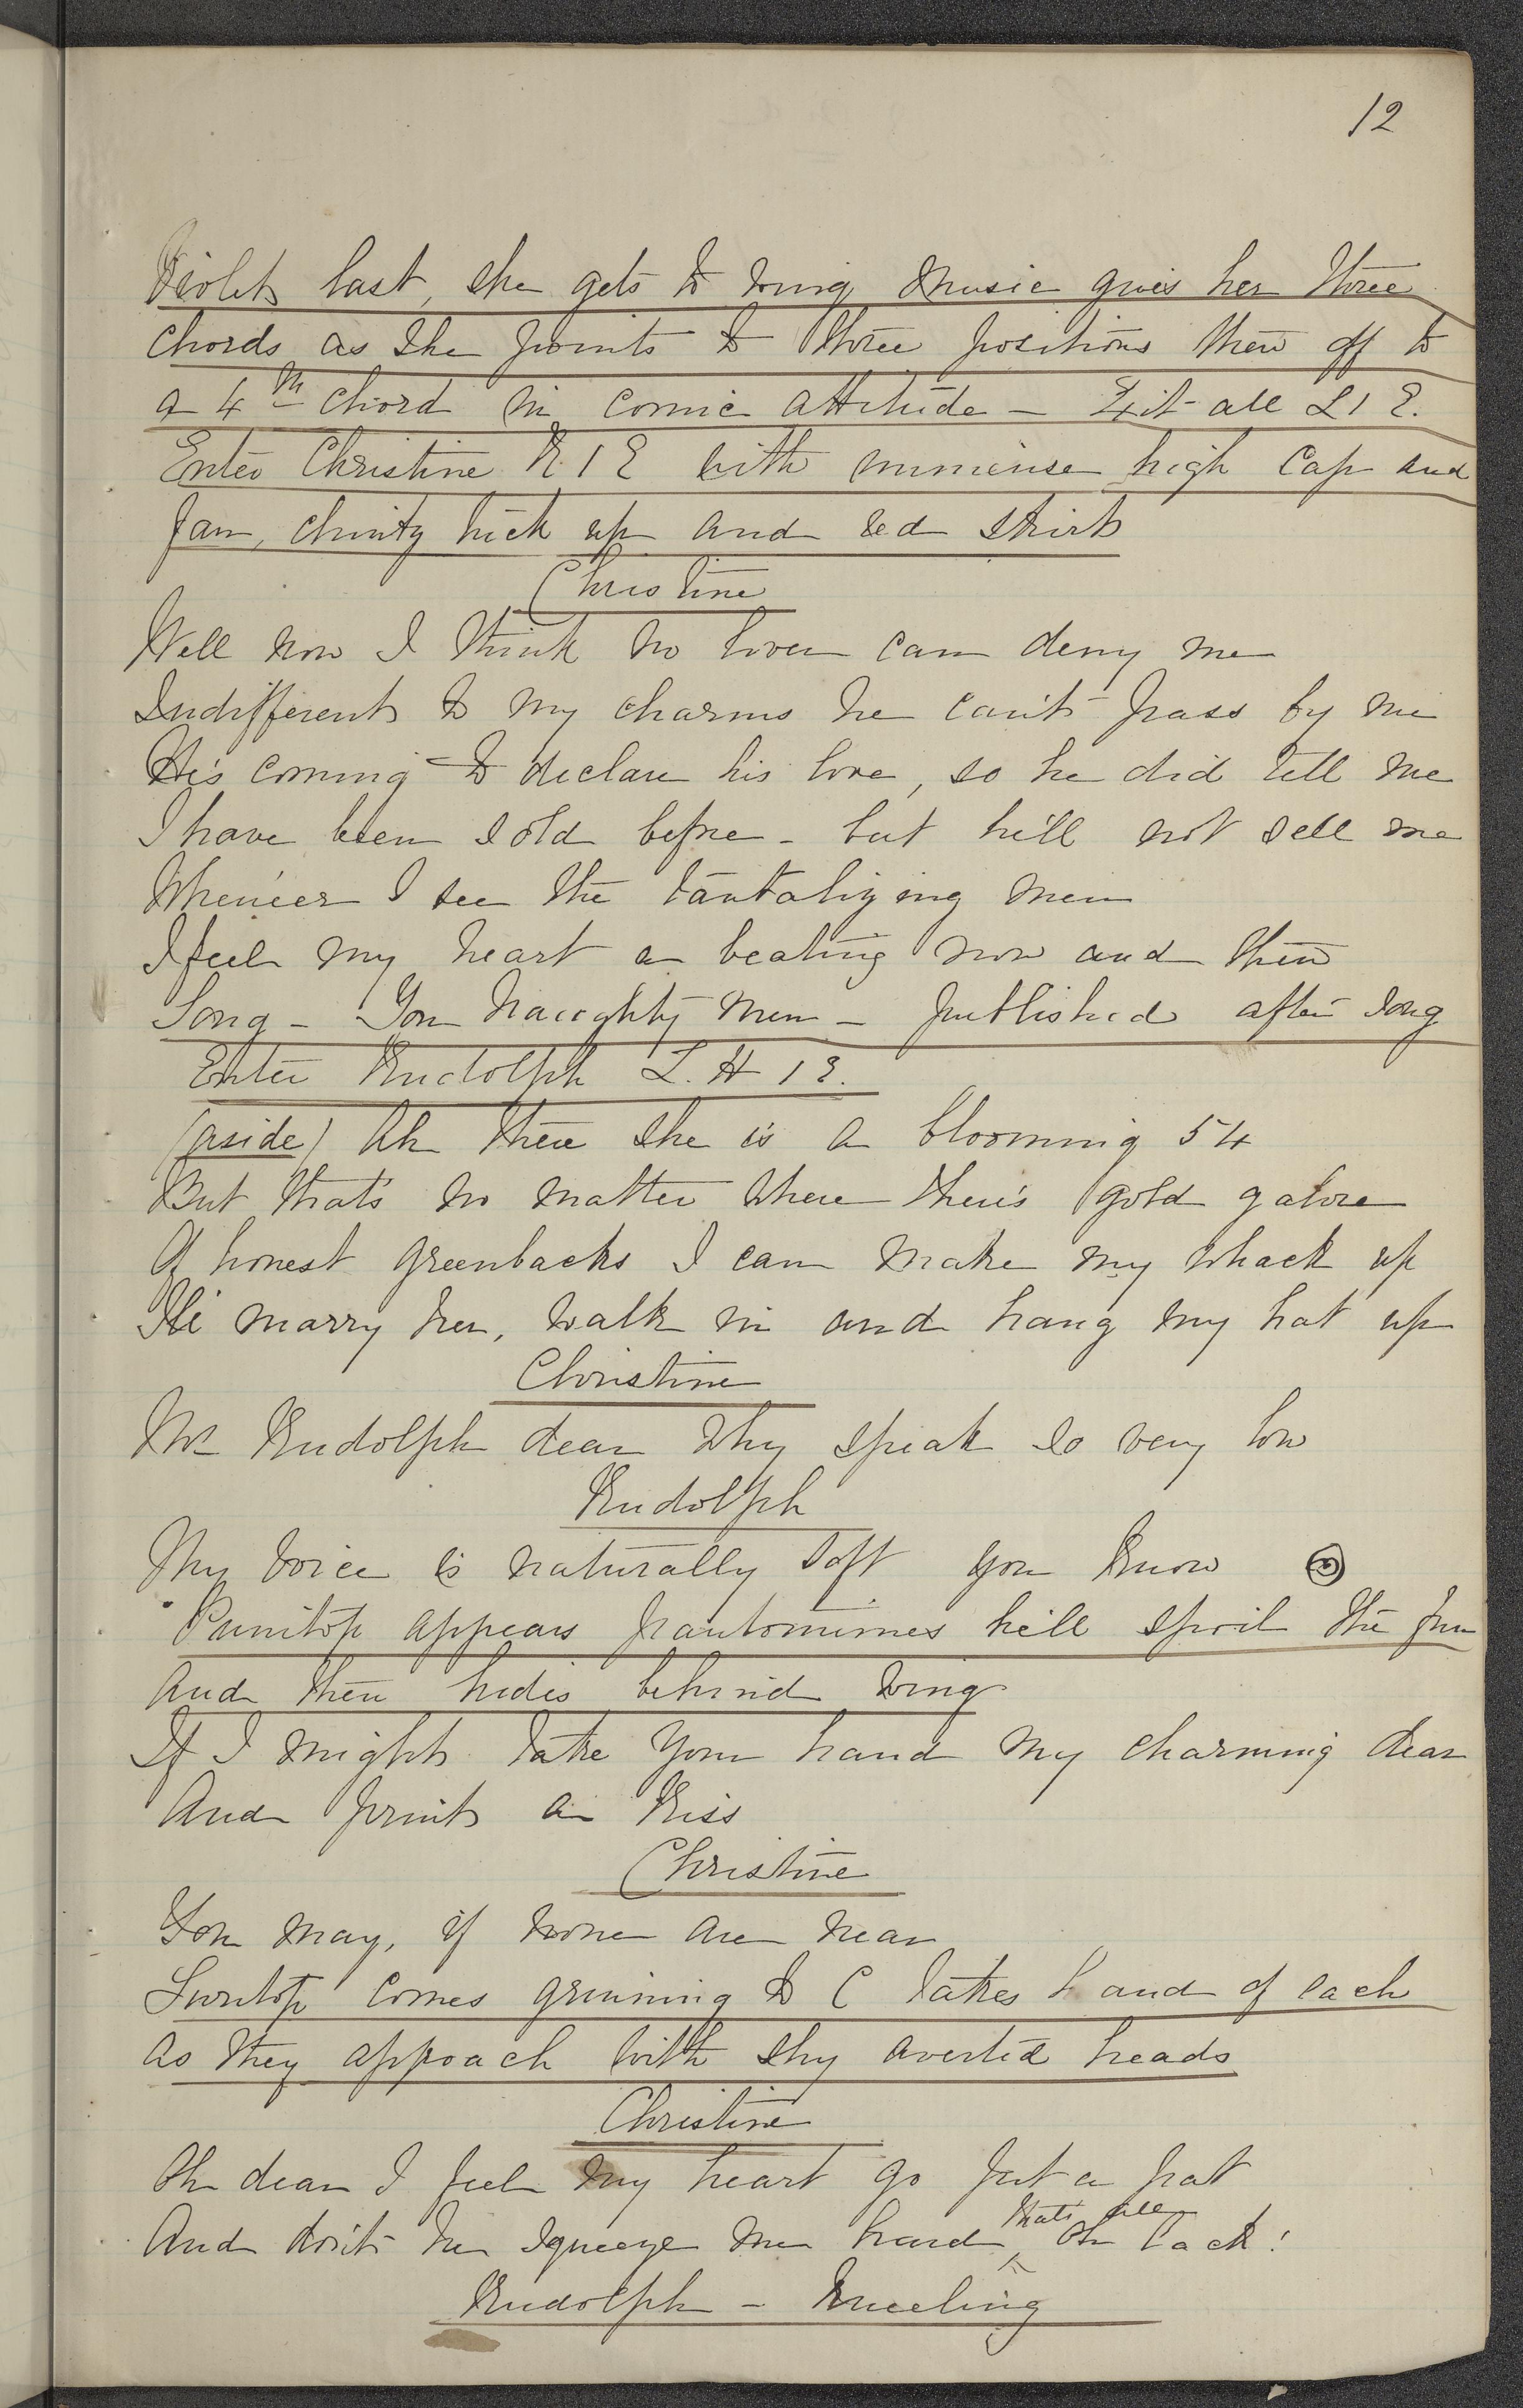 12
Violet last, she gets to wing music gives her three
chords as she points to three positions then off to
a 4th chord in comic attitude – Exit all L 1 E.
Enter Christine R 1 E with immense high Cap and
fan, chintz tuck up and red skirt
Christine
Well now I think no lover can deny me
Indifferent to my charms he can't pass by me
He's coming to declare his love, so he did tell me
I have been sold before – but he'll not sell me
Whene'er I see the tantalizing men
I feel my heart a beating now and then
Song – You Naughty Men – published after song
Enter Rudolph L. H 1 E.
(aside) Ah there she is a blooming 54
But that's no matter where there's gold galore
Of honest greenbacks I can make my whack up
I'll marry her, walk in and hang my hat up
Christine
Mr Rudolph dear why speak so very low
Rudolph
My voice is naturally soft you know
appears pantomimes he'll spoil the fun
and then hides behind wing
If I might take your hand my charming dear
And print a kiss
Christine
You may, if none are near
comes grinning to C takes hand of each
as they approach with shy averted heads
Christine
Oh dear I feel my heart go pit a pat
And don't he squeeze me hard that's all Oh lack!
Rudolph – Kneeling